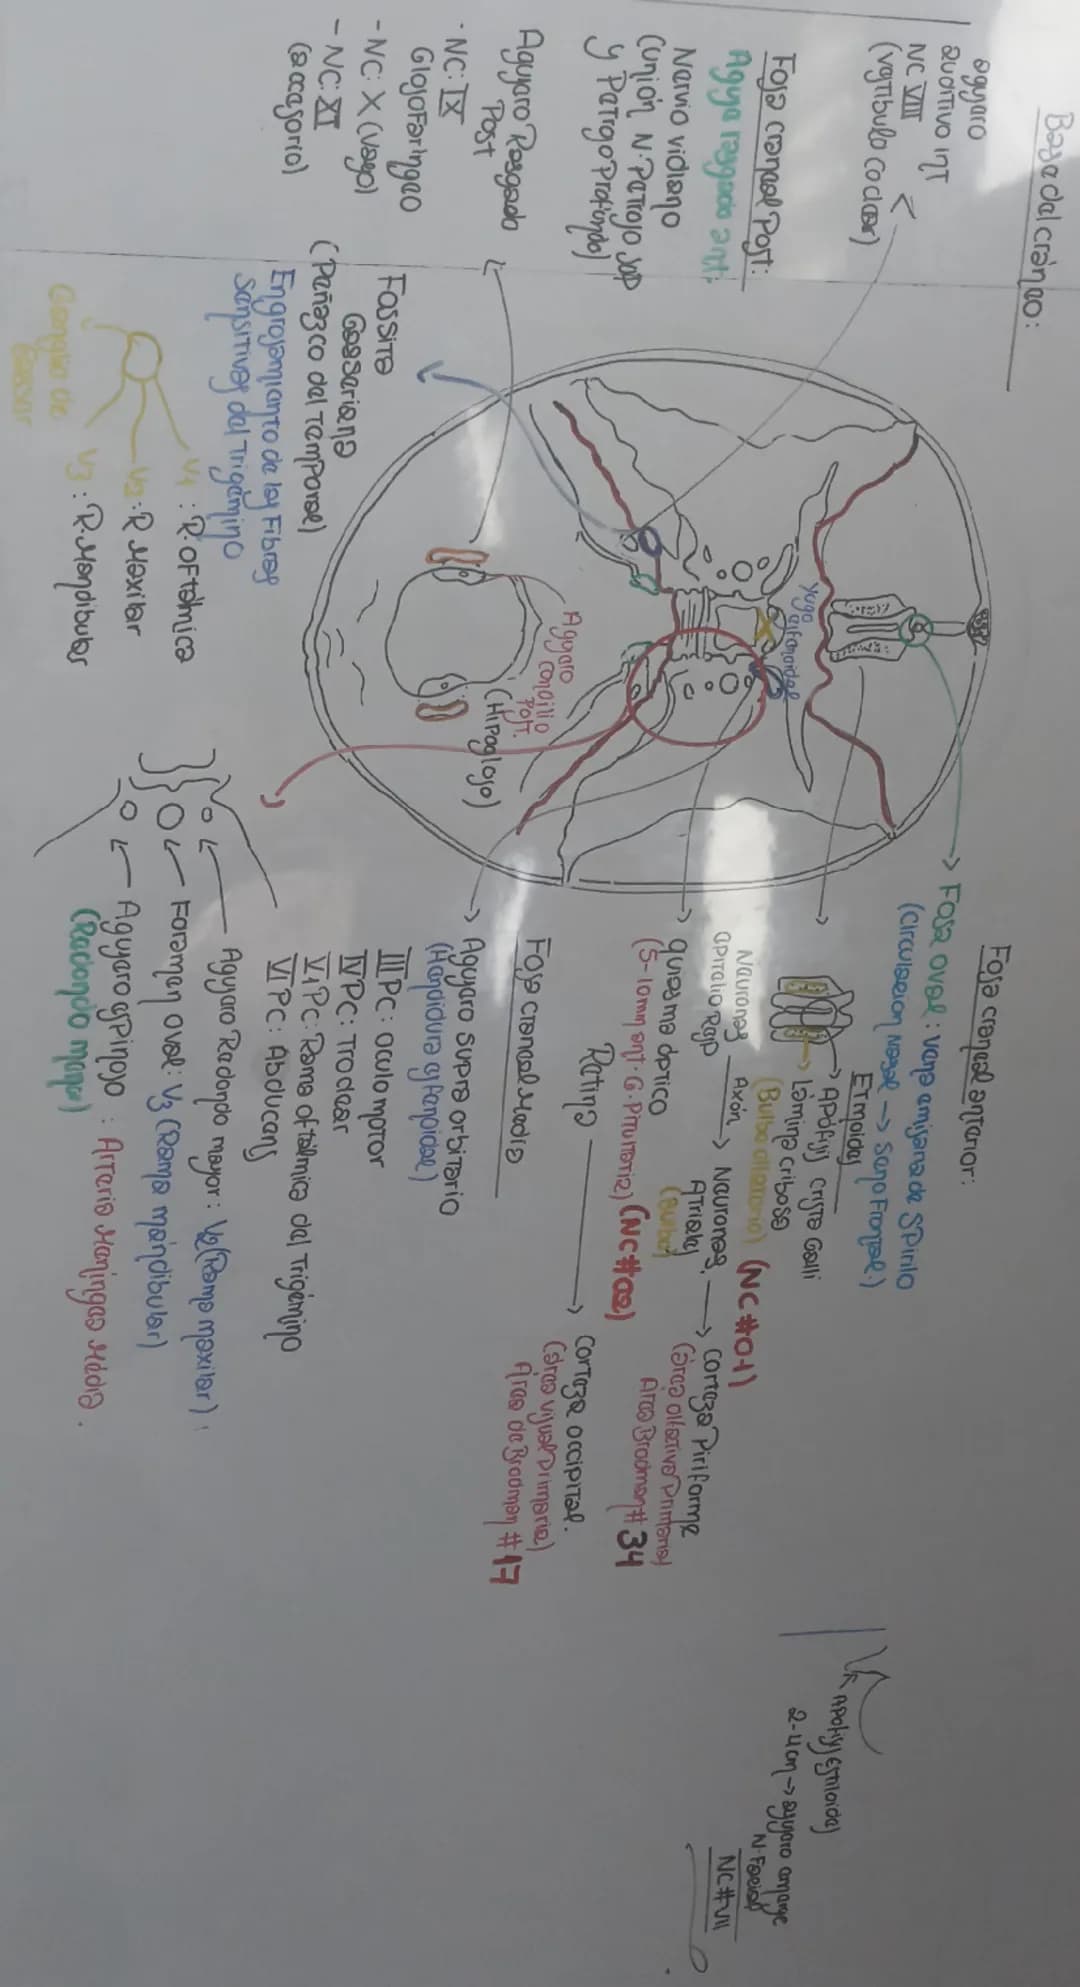 Base del cráneo:
agujero
auditivo int
NC VIII
(vestíbulo coclear)
Fosa craneal Post:
Aguje rasgado ant:
Nervio vidiano
(unión N. Petroso sup
y Petroso Profundo)
Agujero Rasgado
Post
· NC: IX
Glosofaringeo
- NC: X (vago)
- NC: XI
(accesorio)
Fossite
Gasseriana
(Peñasco del Temporal)
Engrosamiento de las Fibras
sensitivas del Trigémino
V1 : R. oftálmica
V2 : R. Maxilar
V3 : R. Mandibular
Ganglio de
Gasser
Yugo
esfenoidal
Agujero
condilio
Post.
(Hipogloso)
Fosa craneal anterior:
Fosa oval : vena emisaria de SPinilo
(circulación Nasal → Seno Frontal)
Etmoides
Apófisis crista Galli
Lámina cribosa
(Bulbo olfatorio) (NC #01)
Neuronas Axón → Neuronas → corteza Piriforme
(Bulbo)
(área olfativa Primaria)
Area Brodman # 34
quiasma óptico
(5-10mm ant. G. Pituitaria) (NC #02)
Retina → corteza occipital.
(área visual Primaria)
Area de Brodman # 17
Fosa craneal Media
Agujero supra orbitario
(Hendidura esfenoidal)
III Pc: oculomotor
IV Pc: Troclear
V1 Pc: Rama oftálmica del Trigémino
VI Pc: Abducens
Agujero Redondo mayor: V2 (Rama maxilar) :
Foramen oval: V3 (Rama mandibular)
Agujero espinoso : Arteria Meningea Media.
(Redondo menor)
Apófisis Estiloides
2-4cm → agujero emerge
N. Facial
NC #VII